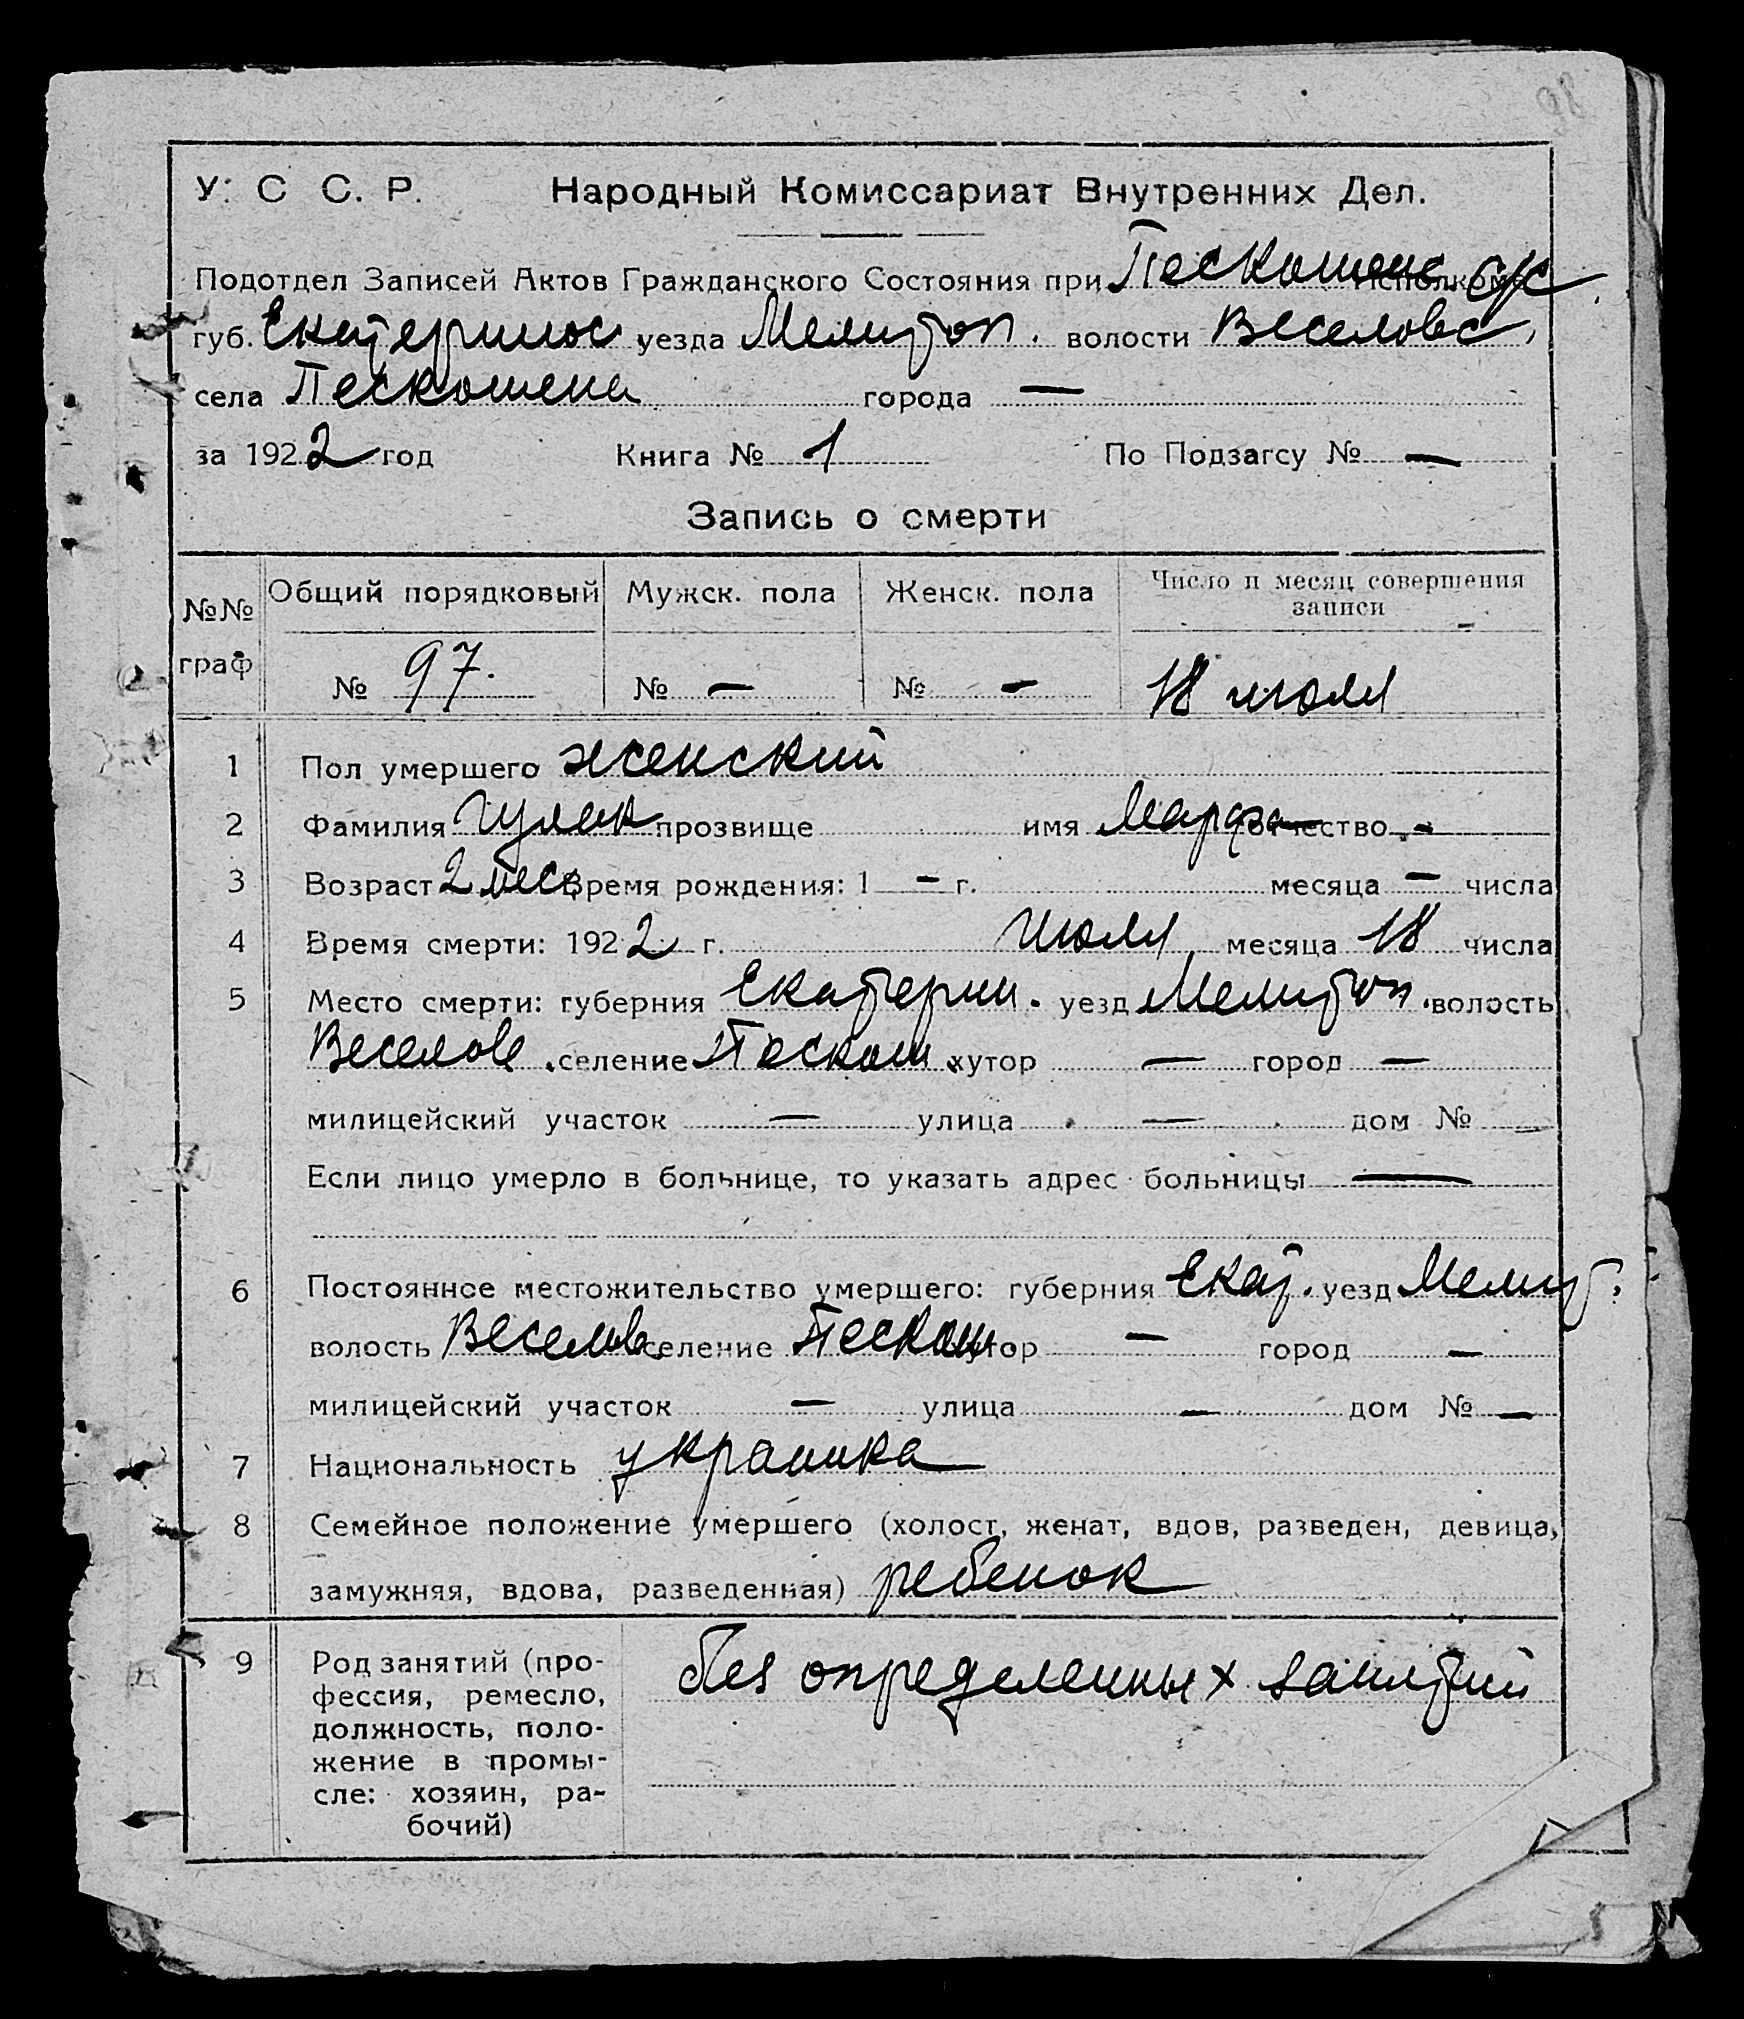 98
У. С. С. Р. Народный Комиссариат Внутренних Дел.
Подотдел Записей Актов Гражданского Состояния при Пескошенс. Исполком с/с
губ. Екатеринос уезда Мелитоп. волости Веселовс,
села Пескошена города —
за 1922 год Книга № 1 По Подзагсу № —
Запись о смерти
№№ граф Общий порядковый Мужск. пола Женск. пола Число и месяц совершения записи
№ 97. № — № — 18 июля
1 Пол умершего женский
2 Фамилия Гуляк прозвище имя Марфа отчество —
3 Возраст 2 мес. Время рождения: 1 — г. месяца — числа
4 Время смерти: 1922 г. Июля месяца 18 числа
5 Место смерти: губерния Екатерин. уезд Мелитоп. волость
Веселов. селение Пескош. хутор — город —
милицейский участок — улица — дом № —
Если лицо умерло в больнице, то указать адрес больницы —
6 Постоянное местожительство умершего: губерния Екат. уезд Мелит.
волость Веселов селение Пескош хутор — город —
милицейский участок — улица — дом № —
7 Национальность украинка
8 Семейное положение умершего (холост, женат, вдов, разведен, девица,
замужняя, вдова, разведенная) ребенок
9 Род занятий (про- без определенных занятий
фессия, ремесло,
должность, поло-
жение в промы-
сле: хозяин, ра-
бочий)